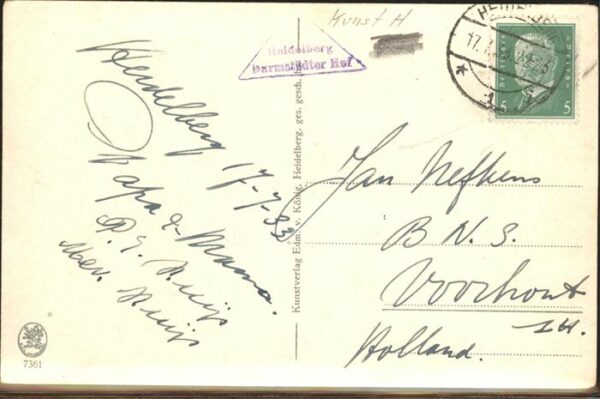 Kunst H
Heidelberg
Darmstädter Hof
HEIDELB
17.7.
5 5
Heidelberg 17-7-33
Papa & Mama.
P. J. Kuijs
Mev. Kuijs
Kunstverlag Edm. v. König, Heidelberg, ges. gesch.
Jan Nefkens
B. N. S.
Voorhout
Holland.
7361